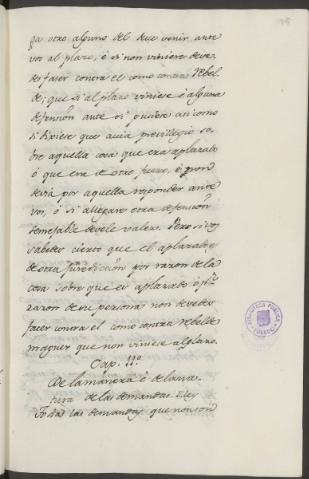 ga otro alguno del deve venir ante
vos al plazo, e si non viniere deve-
des facer contra el como contra rebel-
de; que si al plazo viniese e alguna
defension ante si pusiere asi como
si dixiere que avia previllegio so-
bre aquella cosa que era aplazado
o que era de otro fuero, e non
devia por aquella responder ante
vos, o si allegare otra defension
semejable devele valer. Pero si vos
sabedes cierto que el aplazado es
de otra juredicion por razon de la
cosa sobre que es aplazado o por
razon de su persona non devedes
facer contra el como contra rebelde
maguer que non viniere al plazo.
Cap. IIº
De la manera e de la na-
tura de las demandas. Ley
Todas las demandas que non son
BIBLIOTECA PUBLICA
TOLEDO